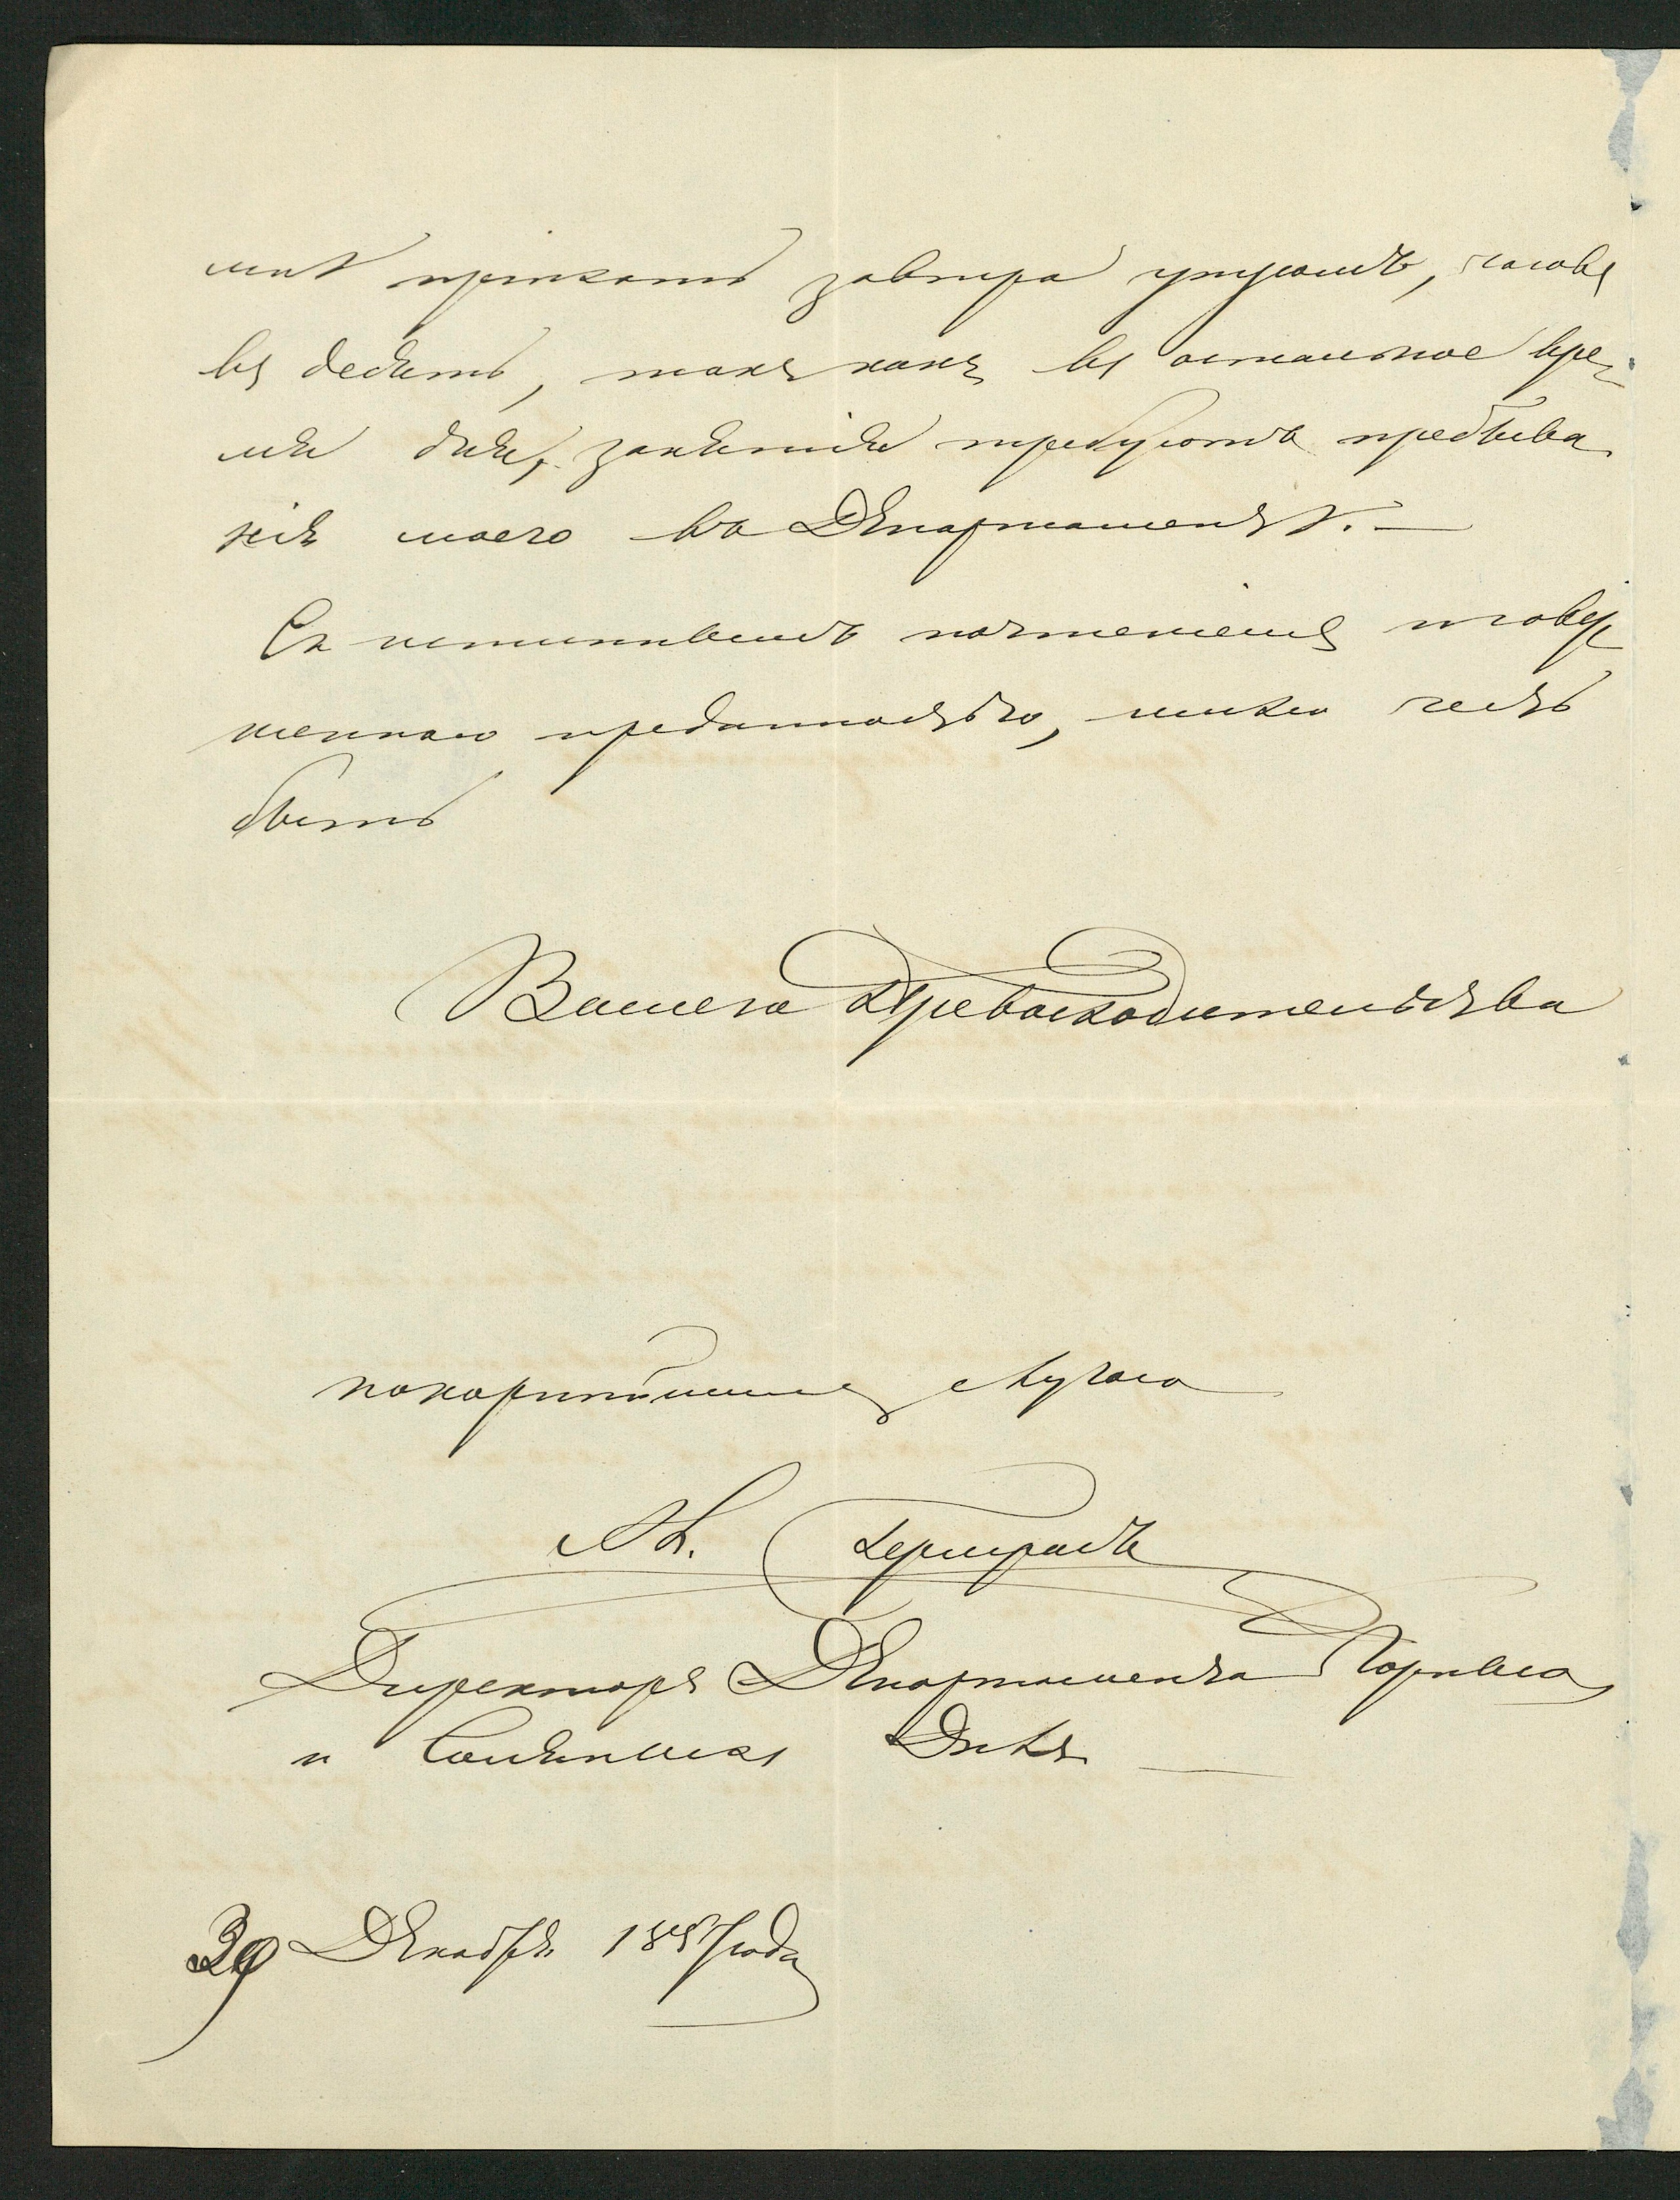 мнѣ пріѣхать завтра утромъ, часовъ
въ десять, такъ какъ въ остальное вре-
мя дня, занятія требуютъ пребыва
нія моего въ Департаментѣ. —
Съ истиннымъ почтеніемъ и совер
шенною преданностью, имѣю честь
быть
Вашего Превосходительства
покорнѣйшимъ слугою
Директоръ Департамента Горныхъ
и Соляныхъ Дѣлъ —
Декабря года